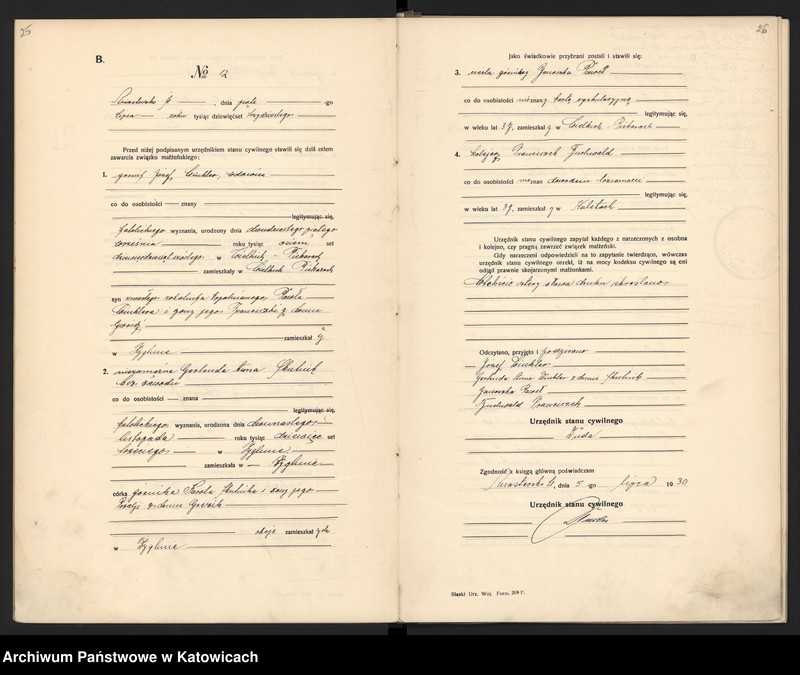 25
B.
№ 2
Miasteczko Śl. , dnia piąte -go
lipca roku tysiąc dziewięćset trzydziestego
Przed niżej podpisanym urzędnikiem stanu cywilnego stawili się dziś celem
zawarcia związku małżeńskiego:
1. Józef Winkler,
co do osobistości — znany
legitymując się,
katolickiego wyznania, urodzony dnia dwudziestego piątego
września roku tysiąc osiem set
dziewięćdziesiąt szóstego w Wielkich Piekarach
zamieszkały w Wielkich Piekarach
syn zmarłego Karola
Winklera i żony jego Franciszki z domu
zamieszkał y
w Żyglinie
2. niezamężna Gertruda Anna Skutnik
bez zawodu
co do osobistości — znana
legitymując się,
katolickiego wyznania, urodzona dnia dwunastego
listopada roku tysiąc dziewięć set
trzeciego w Żyglinie
zamieszkała w Żyglinie
córka górnika Karola Skutnika i żony jego
z domu
oboje zamieszkał ych
w Żyglinie
26
Jako świadkowie przybrani zostali i stawili się:
3. górniczy Janoszka Paweł
co do osobistości nieznany kartą cyrkulacyjną
legitymując się,
w wieku lat 37, zamieszkał y w Wielkich Piekarach
4. kolejarz Franciszek Zuchwald
co do osobistości nieznan dowodem tożsamości
legitymując się,
w wieku lat 37, zamieszkał y w Kaletach
Urzędnik stanu cywilnego zapytał każdego z narzeczonych z osobna
i kolejno, czy pragną zawrzeć związek małżeński.
Gdy narzeczeni odpowiedzieli na to zapytanie twierdząco, wówczas
urzędnik stanu cywilnego orzekł, iż na mocy kodeksu cywilnego są oni
odtąd prawnie skojarzonymi małżonkami.
cztery słowa druku skreślono
Odczytano, przyjęto i podpisano
Józef Winkler
Gertruda Anna Winkler z domu Skutnik
Janoszka Paweł
Zuchwald Franciszek
Urzędnik stanu cywilnego
Duda
Zgodność z księgą główną poświadczam
Miasteczko Śl., dnia 5 -go lipca 19 30
Urzędnik stanu cywilnego
Śląski Urz. Woj. Form. 209 F.
Archiwum Państwowe w Katowicach